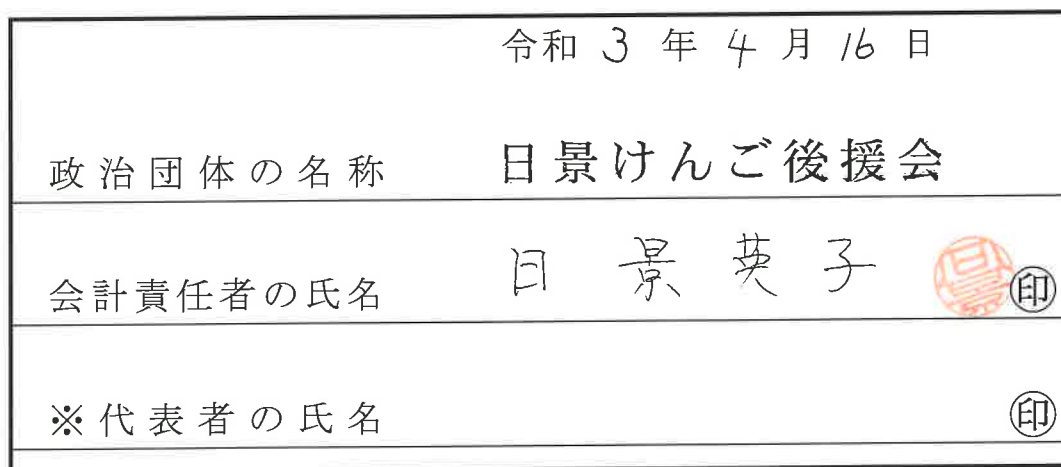 令和 3 年 4 月 16 日
政治団体の名称 日景けんご後援会
会計責任者の氏名 日景英子 日景 ㊞
※代表者の氏名 ㊞